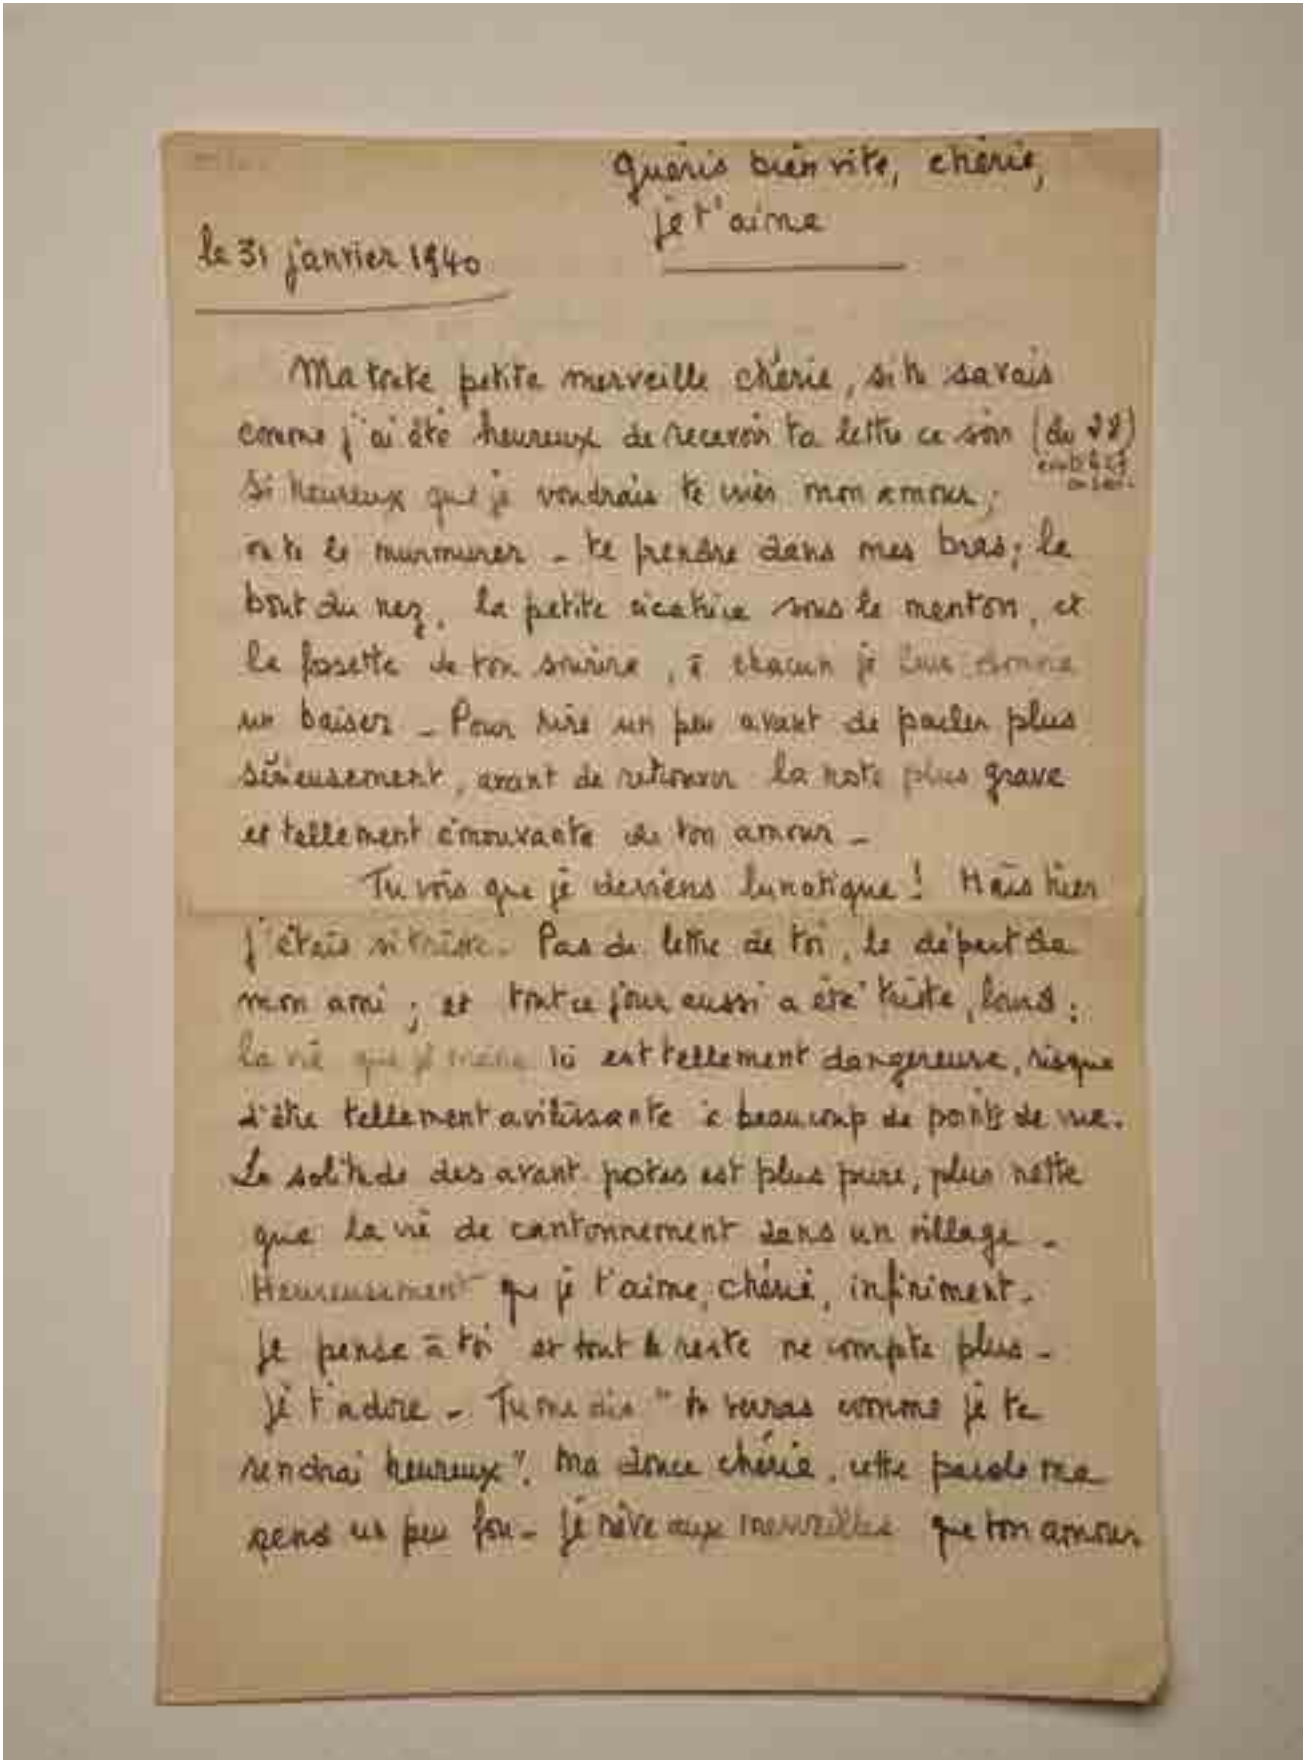 Guéris bien vite, chérie,
je t'aime
le 31 janvier 1940
Ma toute petite merveille chérie, si tu savais
comme j'ai été heureux de recevoir ta lettre ce soir (du 28)
Si heureux que je voudrais te crier mon amour ;
ou te le murmurer - te prendre dans mes bras ; le
bout du nez, la petite cicatrice sous le menton, et
la fossette de ton sourire, à chacun je leur donne
un baiser - Pour rire un peu avant de parler plus
sérieusement, avant de retrouver la note plus grave
et tellement émouvante de ton amour -
Tu vois que je deviens lunatique ! Mais hier
j'étais si triste. Pas de lettre de toi, le départ de
mon ami ; et tout ce jour aussi a été triste, lourd :
la vie que je mène ici est tellement dangereuse, risque
d'être tellement avilissante à beaucoup de points de vue.
La solitude des avant-postes est plus pure, plus nette
que la vie de cantonnement dans un village -
Heureusement que je t'aime, chérie, infiniment.
Je pense à toi et tout le reste ne compte plus -
Je t'adore - Tu me dis "tu verras comme je te
rendrai heureux". Ma douce chérie, cette parole me
rend un peu fou - Je rêve aux merveilles que ton amour